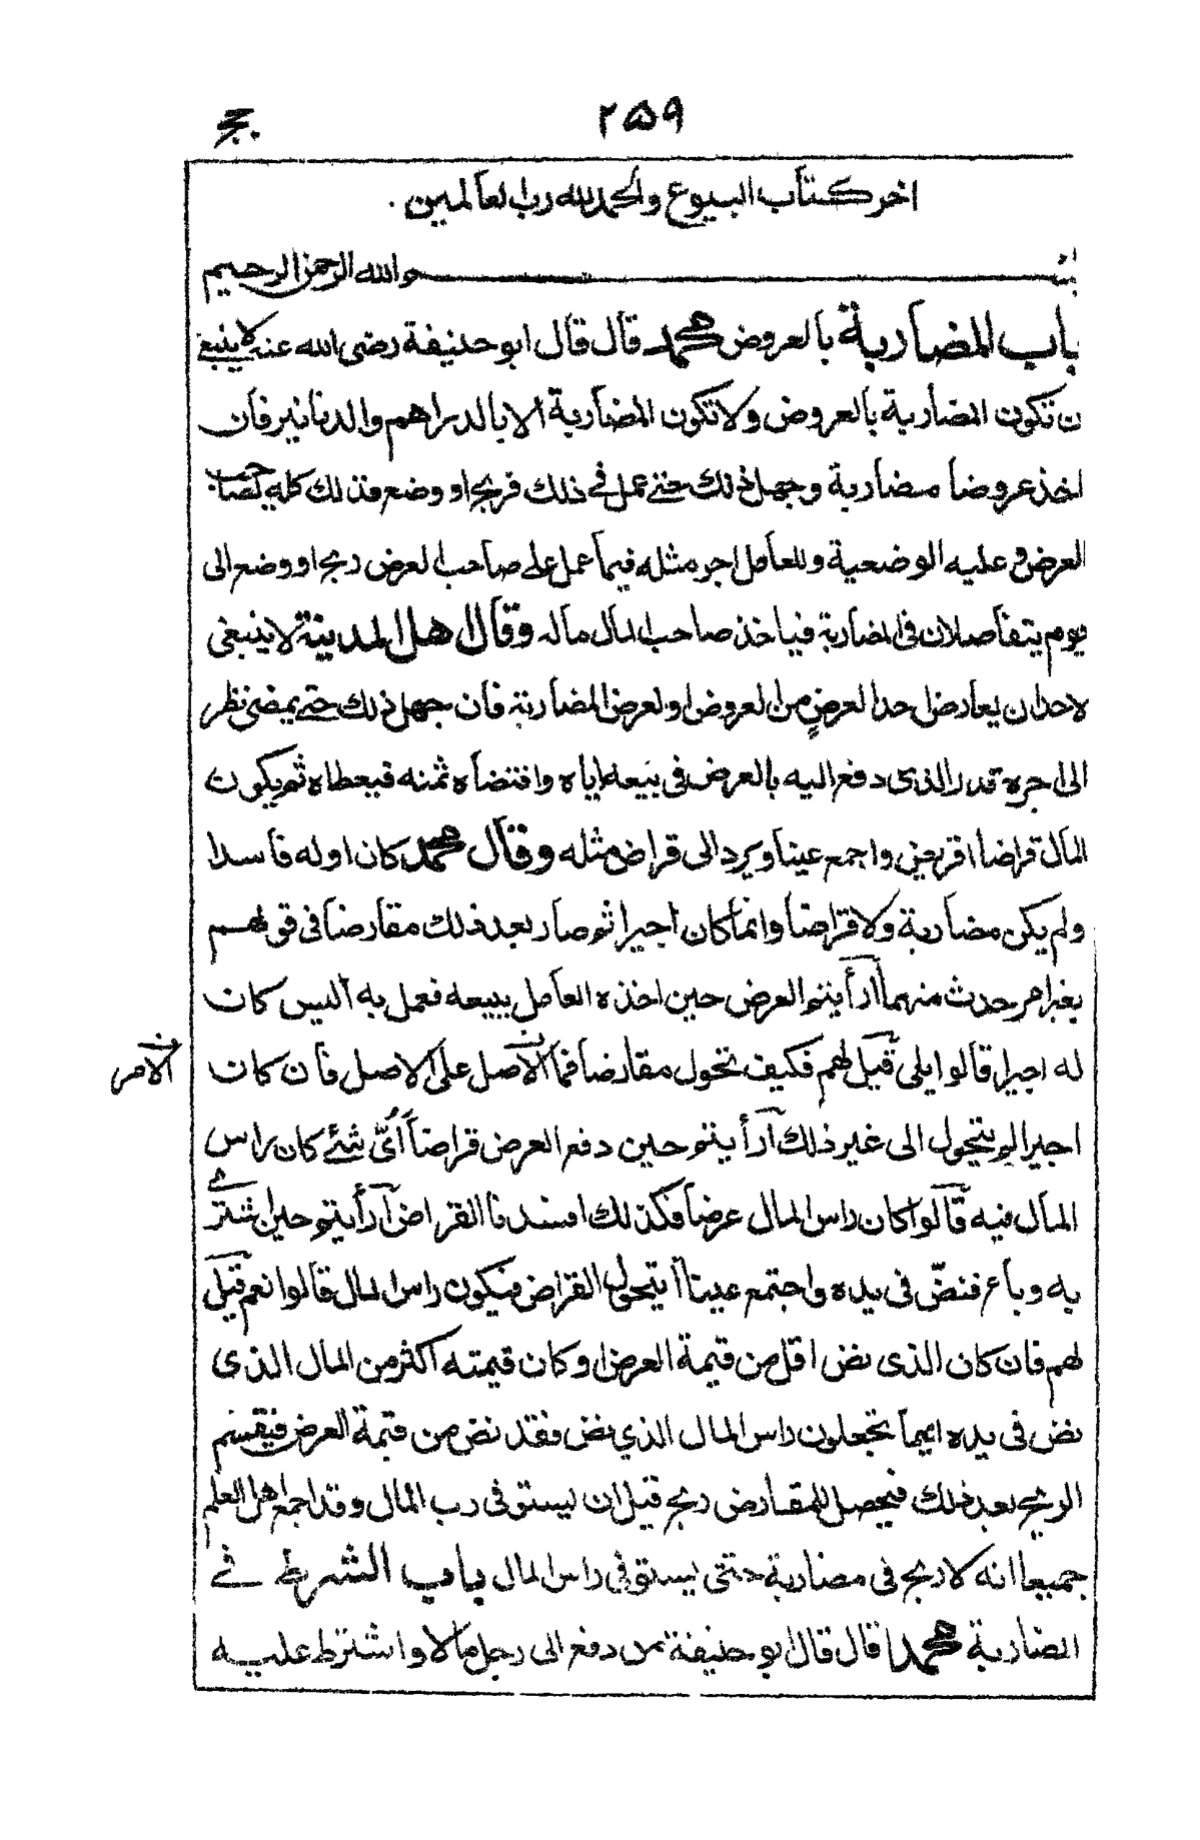 ۲۵۹
اخر كتاب البيوع والحمد لله رب العالمين.
بسم الله الرحمن الرحيم
باب المضاربة بالعروض محمد قال قال ابو حنيفة رضى الله عنه لا ينبغى
ن تكون المضاربة بالعروض ولا تكون المضاربة الا بالدراهم والدنانير فان
اخذ عروضا مضاربة وجهل ذلك حتى عمل فى ذلك فربح او وضع فذلك كله لصاحب
العرض وعليه الوضعية وللعامل اجر مثله فيما عمل على صاحب العرض ربح او وضع الى
يوم يتفاصلان فى المضاربة فياخذ صاحب المال ماله وقال اهل المدينة لا ينبغى
لاحد ان يعارض احدا لعرض من العروض او لعرض المضاربة فان جهل ذلك حتى يمضى نظر
الى اجره قدر الذى دفع اليه بالعرض فى بيعه اياه واقتضاه ثمنه فيعطاه ثم يكون
المال قراضا اقر يعنى واجمع عينا ويرد الى قراض مثله وقال محمد كان اوله فاسدا
ولم يكن مضاربة ولا قراضا وانما كان اجيرا ثم صار بعد ذلك مقارضا فى قولهم
بغير امر حدث منهما أرأيتم العرض حين اخذه العامل يبيعه فعمل به اليس كان
له اجيرا قالوا بلى قيل لهم فكيف تحول مقارضا فما الاصل على الاصل فان كان
الامر
اجيرا لم يتحول الى غير ذلك أرأيتم حين دفع العرض قراضا أىّ شئ كان راس
المال فيه قالوا كان راس المال عرضا فكذلك افسدنا القراض أرأيتم حين اشترى
به وباع فنضّ فى يده واجتمع عينا أيتحول القراض فيكون راس المال قالوا نعم قيل
لهم فان كان الذى نض اقل من قيمة العرض او كان قيمته اكثر من المال الذى
نض فى يده ايهما تجعلون راس المال الذي نض فقد نض من قيمة العرض فيقسم
الربح بعد ذلك فيحصل للمقارض ربح قبل ان يستوفى رب المال وقد اجمع اهل العلم
جميعا انه لا ربح فى مضاربة حتى يستوفى راس المال باب الشرط فى
المضاربة محمد قال قال ابو حنيفة من دفع الى رجل مالا واشترط عليه